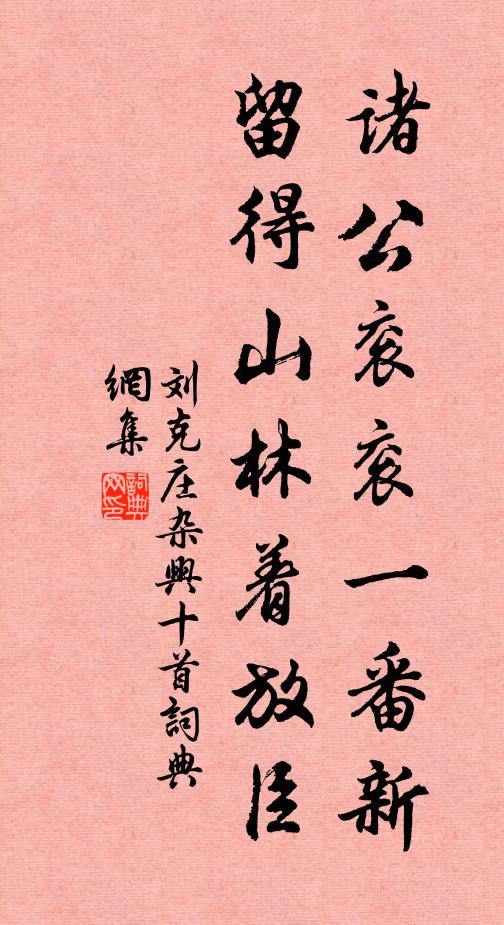 諸公衮衮一番新
留得山林着放臣
刘克庄杂興十首詞典
網集
詞典
网印